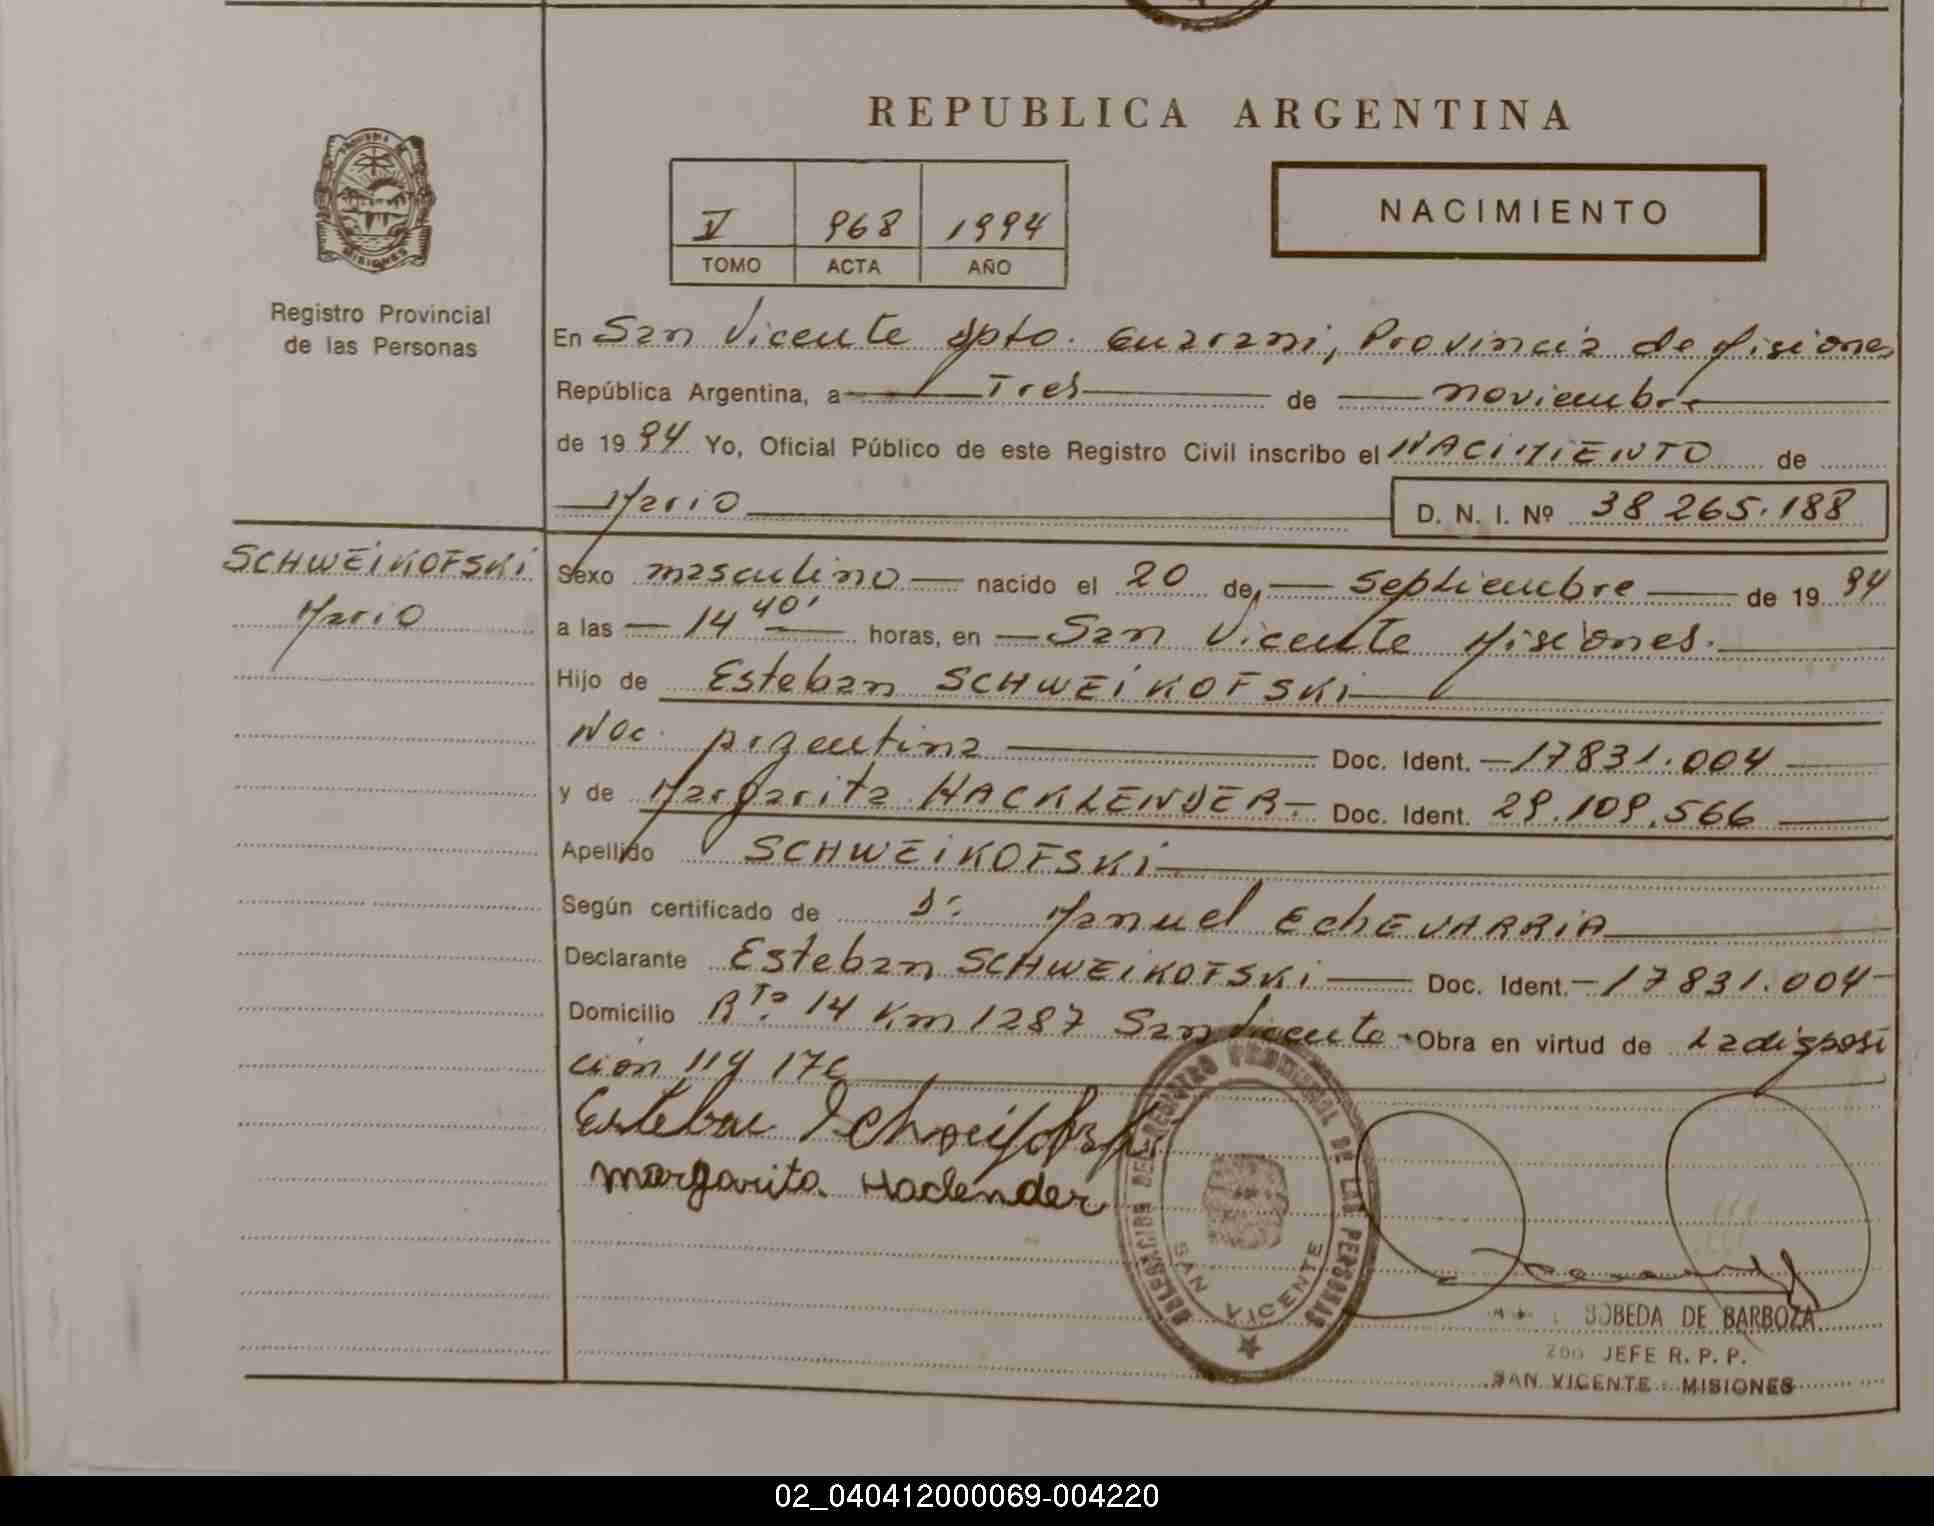 REPUBLICA ARGENTINA
PROVINCIA DE MISIONES
Registro Provincial
de las Personas
V 968 1994
TOMO ACTA AÑO
NACIMIENTO
En San Vicente dpto. Guarani, Provincia de Misiones
República Argentina, a Tres de noviembre
de 19 94 Yo, Oficial Público de este Registro Civil inscribo el NACIMIENTO de
Mario D. N. I. Nº 38 265.188
SCHWEIKOFSKI
Mario
Sexo masculino nacido el 20 de septiembre de 19 94
a las 14 40' horas, en San Vicente Misiones.
Hijo de Esteban SCHWEIKOFSKI
Nac. Argentina Doc. Ident. 17831.004
y de Margarita HACKLENDER Doc. Ident. 29.109.566
Apellido SCHWEIKOFSKI
Según certificado de Dr. Manuel EchEVARRIA
Declarante Esteban SCHWEIKOFSKI Doc. Ident. 17831.004
Domicilio Rta. 14 Km 1287 San Vicente Obra en virtud de La disposi
ción 119 17C
Esteban
Margarita Haclender
DELEGACION DEL REGISTRO PROVINCIAL DE LAS PERSONAS
SAN VICENTE
BOBEDA DE BARBOZA
2do JEFE R. P. P.
SAN VICENTE MISIONES
02_040412000069-004220